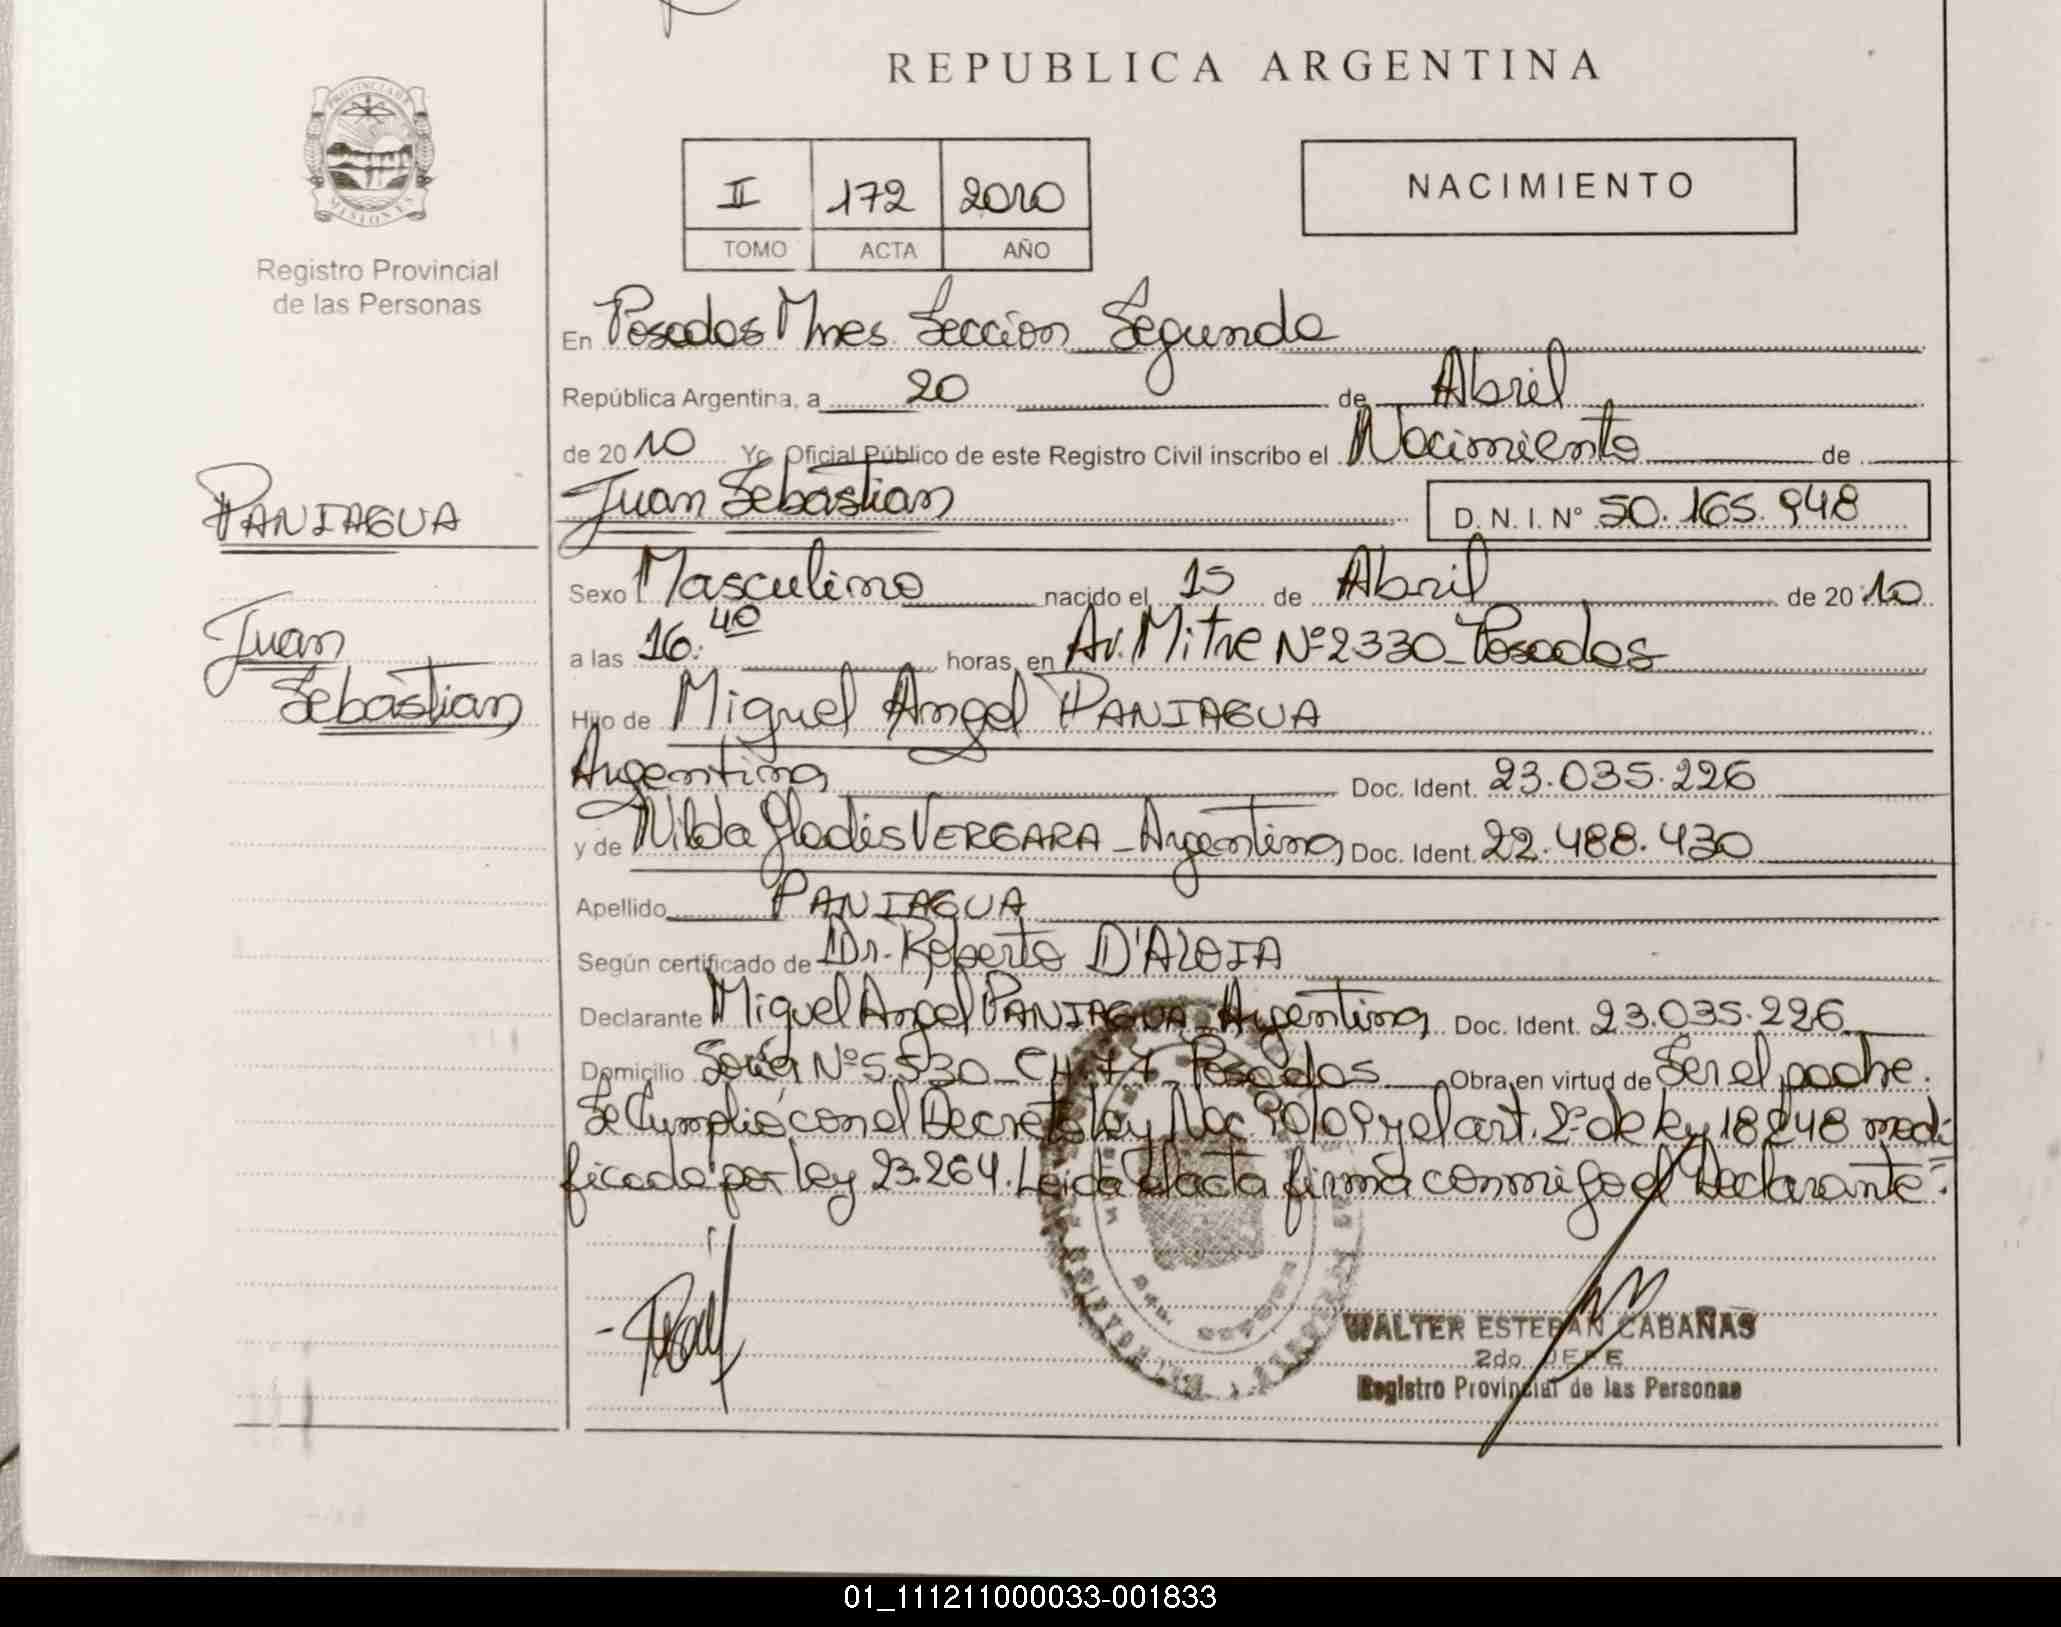 REPUBLICA ARGENTINA
PROVINCIA DE
MISIONES
Registro Provincial
de las Personas
II 172 2010
TOMO ACTA AÑO
NACIMIENTO
En Posadas Mnes. Seccion Segunda
República Argentina, a 20 de Abril
de 2010 Yo Oficial Público de este Registro Civil inscribo el Nacimiento de
PANIAGUA
Juan Sebastian D. N. I. N° 50.165.948
Sexo Masculino nacido el 15 de Abril de 2010
Juan
Sebastian
a las 16:40 horas, en Av. Mitre Nº 2330_Posadas
Hijo de Miguel Angel PANIAGUA
Argentina Doc. Ident. 23.035.226
y de Nilda Gladis VERGARA - Argentina Doc. Ident. 22.488.430
Apellido PANIAGUA
Según certificado de Dr. Roberto D'ALOIA
Declarante Miguel Angel PANIAGUA Argentina Doc. Ident. 23.035.226
Domicilio Soria Nº 5.530_CH. 77_Posadas Obra en virtud de Ser el padre.
Se Cumplió con el Decreto ley Nac. y el art. 2º de ley 18248 modi
ficado por ley 23.264. Leida el acta firma conmigo el Declarante.
WALTER ESTEBAN CABAÑAS
2do JEFE
Registro Provincial de las Personas
01_111211000033-001833